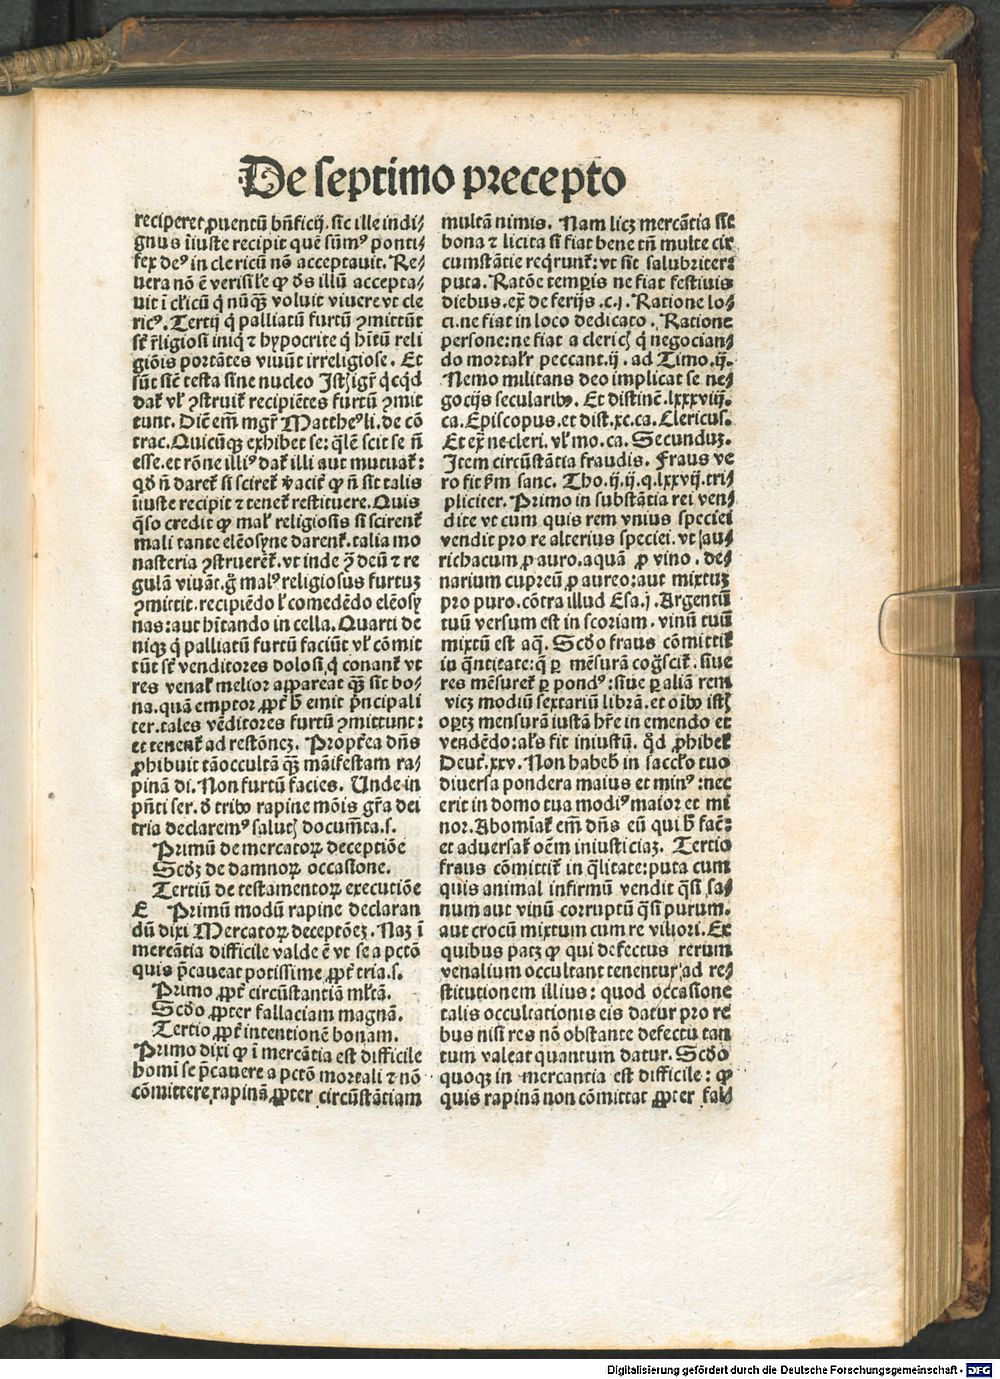 De septimo precepto
reciperet ꝓuentū bn̄ficij. sic ille indi⸗
gnus iniuste recipit quē sūmꝰ ponti⸗
fex deꝰ in clericū nō acceptauit. Re⸗
uera nō ē verisil̓e ꝙ dn̄s illū accepta⸗
uit ī cl̓icū q̓ nūqꝫ voluit viuere vt cle
ricꝰ. Tertij q̓ palliatū furtū ꝯmittūt
sūt r̄ligiosi iniq̓ ⁊ hypocrite q̓ hītū reli
giōis portātes viuūt irreligiose. Et
sūt sic̄ testa sine nucleo Istꝫ igr̄ q̓cq̓d
dat̄ vl̓ ꝯstruit̄ recipiētes furtū ꝯmit
tunt. Dic̄ em̄ mgr̄ Mattheꝰ li. de cō
trac. Quicūqꝫ exhibet se: qūlē scit se n̄
esse. et rōne illiꝰ dat̄ illi aut mutuat̄:
qd̓ n̄ daret̄ si sciret̄ vacit̄ ꝙ n̄ sit talis
iniuste recipit ⁊ tenet̄ restituere. Quis
q̄so credit ꝙ mal̓ religiosis si scirent̄
mali tante elēosyne darent̄. talia mo
nasteria ꝯstruerēt̄. vt inde ꝯ deū ⁊ re
gulā viuāt. g̊ malꝰ religiosus furtuꝫ
ꝯmittit. recipiēdo l̓ comedēdo elēosy
nas: aut hītando in cella. Quarti de
niqꝫ q̓ palliatū furtū faciūt vl̓ cōmit
tūt sūt venditores dolosi, q̓ conant̄ vt
res venal̓ melior appareat qꝫ sit bo⸗
na. quā emptor ꝓpt̄ h̓ emit p̓ncipali
ter. tales vēditores furtū ꝯmittunt:
et tenent̄ ad restōneꝫ. Propt̄ea dn̄s
ꝓhibuit tā occultā qꝫ māifestam ra⸗
pinā di. Non furtū facies. Unde in
pn̄ti ser. d̓ tribꝰ rapine mōis gr̄a dei
tria declaremꝰ salutꝫ docum̄ta. s.
Primū de mercatoꝝ deceptiōe
Scd̓ꝫ de damnoꝝ occasione.
Tertiū de testamentoꝝ executiōe
E Primū modū rapine declaran
dū dixi Mercatoꝝ deceptōeꝫ. Naꝫ ī
mercātia difficile valde ē vt se a pctō
quis p̄caueat potissime ꝓpt̄ tria. s.
Primo ꝓpt̄ circūstantiā ml̓tā.
Scd̓o ꝓpter fallaciam magnā.
Tertio ꝓpt̄ intentionē bonam.
Primo dixi ꝙ ī mercātia est difficile
homi se p̄cauere a pctō mortali ⁊ nō
cōmittere rapinā ꝓpter circūstātiam
multā nimis. Nam licꝫ mercātia sit
bona ⁊ licita si fiat bene tn̄ multe cir
cumstātie req̓runt̄: vt sit salubriter:
puta. Ratōe temꝑis ne fiat festiuis
diebus. ex̄ de ferijs .c.j. Ratione lo⸗
ci. ne fiat in loco dedicato. Ratione
persone: ne fiat a clericꝫ q̓ negocian⸗
do mortal̓r peccant. ij. ad Timo. ij.
Nemo militans deo implicat se ne⸗
gocijs secularibꝰ. Et distinc̄. lxxxviij.
ca. Episcopus. et dist. xc. ca. Clericus.
Et ex̄ ne cleri. vl̓ mo. ca. Secunduꝫ.
Item circūstātia fraudis. Fraus ve
ro fit ẜm sanc. Tho. ij. ij. q. lxxvij. tri⸗
pliciter. Primo in substātia rei ven⸗
dite vt cum quis rem vnius speciei
vendit pro re alterius speciei. vt au⸗
richacum ꝓ auro. aquā ꝓ vino. de⸗
narium cupreū ꝓ aureo: aut mixtuꝫ
pro puro. cōtra illud Esa. j. Argentū
tuū versum est in scoriam. vinū tuū
mixtū est aq̄. Scd̓o fraus cōmittit̄
in q̄ntitate: q̄ ꝑ mēsurā cog̓scit̄. siue
res mēsuret̄ ꝑ pondꝰ: siue ꝑ aliā rem
vicꝫ modiū sextariū librā. et oībꝰ istꝫ
oportꝫ mensurā iustā hr̄e in emendo et
vendēdo: al̓s fit iniustū. qd̓ ꝓhibet̄
Deut̄. xxv. Non habeb̓ in sacclo tuo
diuersa pondera maius et minꝰ: nec
erit in domo tua modiꝰ maior et mi
nor. Abomīat̄ em̄ dn̄s eū qui h̓ fac̄:
et aduersat̄ oēm iniusticiaꝫ. Tertio
fraus cōmittit̄ in q̄litate: puta cum
quis animal infirmū vendit q̄si sa⸗
num aut vinū corruptū q̄si purum.
aut crocū mixtum cum re viliori. Ex
quibus patꝫ ꝙ qui defectus rerum
venalium occultant tenentur ad re⸗
stitutionem illius: quod occasione
talis occultationis eis datur pro re
bus nisi res nō obstante defectu tan
tum valeat quantum datur. Scd̓o
quoqꝫ in mercantia est difficile: ꝙ
quis rapinā non cōmittat ꝓpter fal⸗
Digitalisierung gefördert durch die Deutsche Forschungsgemeinschaft - DFG